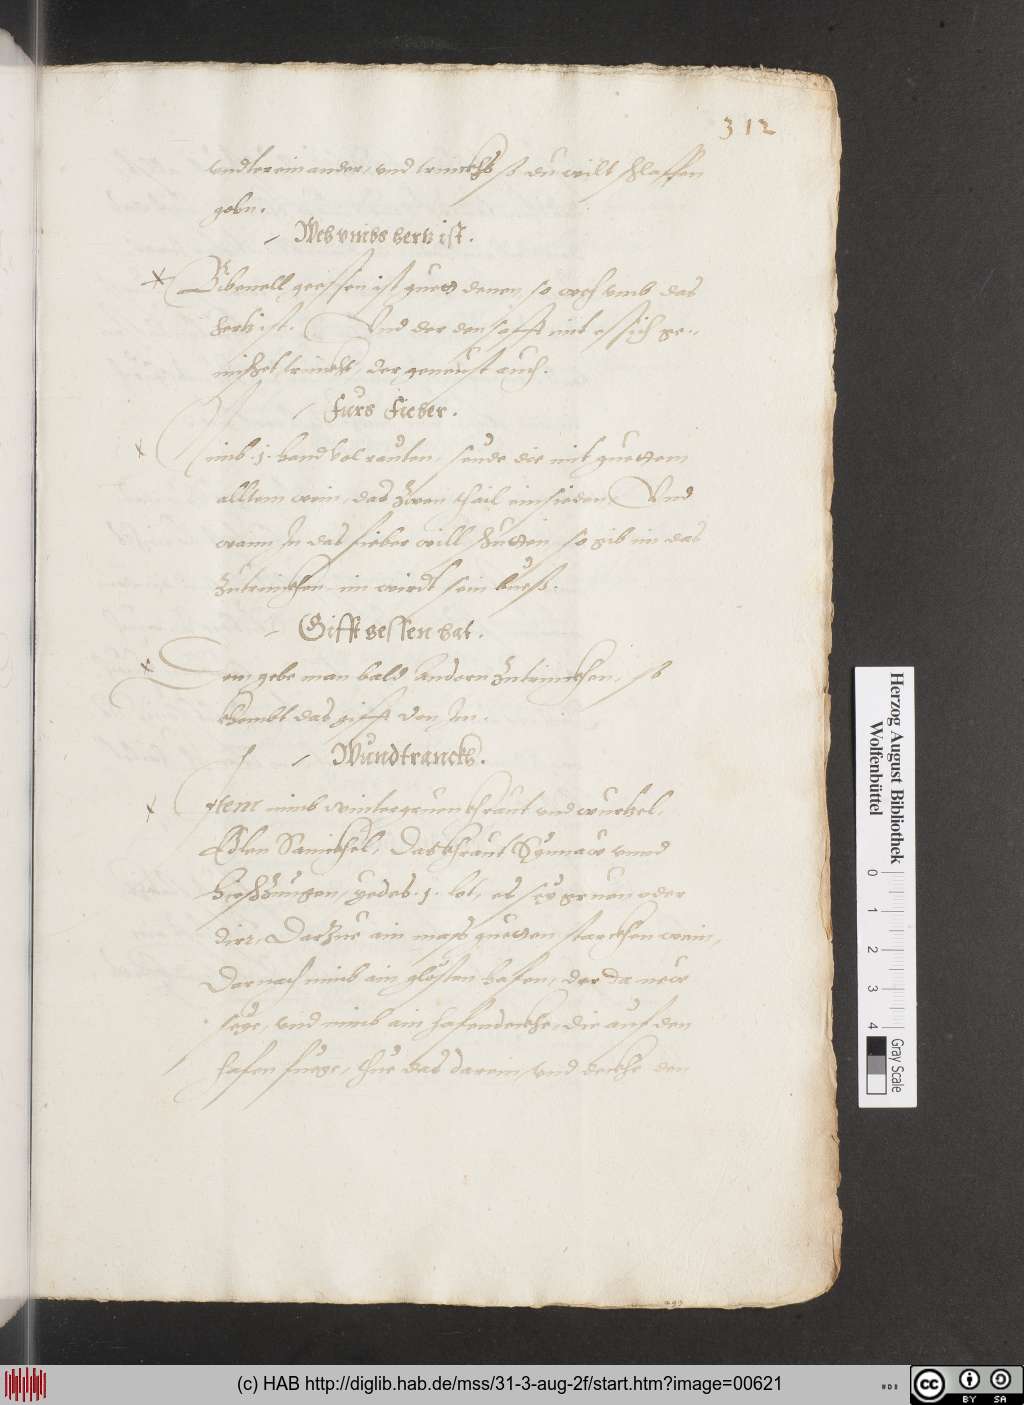 312
vndtereinander, vnd trinckhs so du wilt schlaffen
gehn.
Weh vmbs hertz ist.
Bibenell geessen ist guett denen, so weh vmb das
hertz ist. Vnd der den safft mit essich ge-
mischet trinckht, der geneust auch.
Furs Fieber.
Nimb .1. handvol rauten, seude die mit guettem
alltem wein, das zwen thail einsieden, Vnd
wann In das fieber will schutten, so gib im das
zutrinckhen, im wirdt sein buess.
Gifft gessen hat.
Dem gebe man bald Andorn zutrinckhen, so
khombt das gifft von Im.
Wundtrancks.
Item nimb wintergruen khraut vnd wurtzel,
Edlen Sanickhel, Das khraut Synnaw vnnd
hirschzungen, yedes .1. lot, es sey gruen oder
dirr, Darzue ain mass guetten starckhen wein,
Darnach nimb ain glasten hafen, der da new
seye, vnd nimb ain hafendeckhe, die auf den
hafen fuege, thue das darein, vnd deckhe den
Herzog August Bibliothek
Wolfenbüttel
0 1 2 3 4
Gray Scale
(c) HAB http://diglib.hab.de/mss/31-3-aug-2f/start.htm?image=00621
cc BY SA